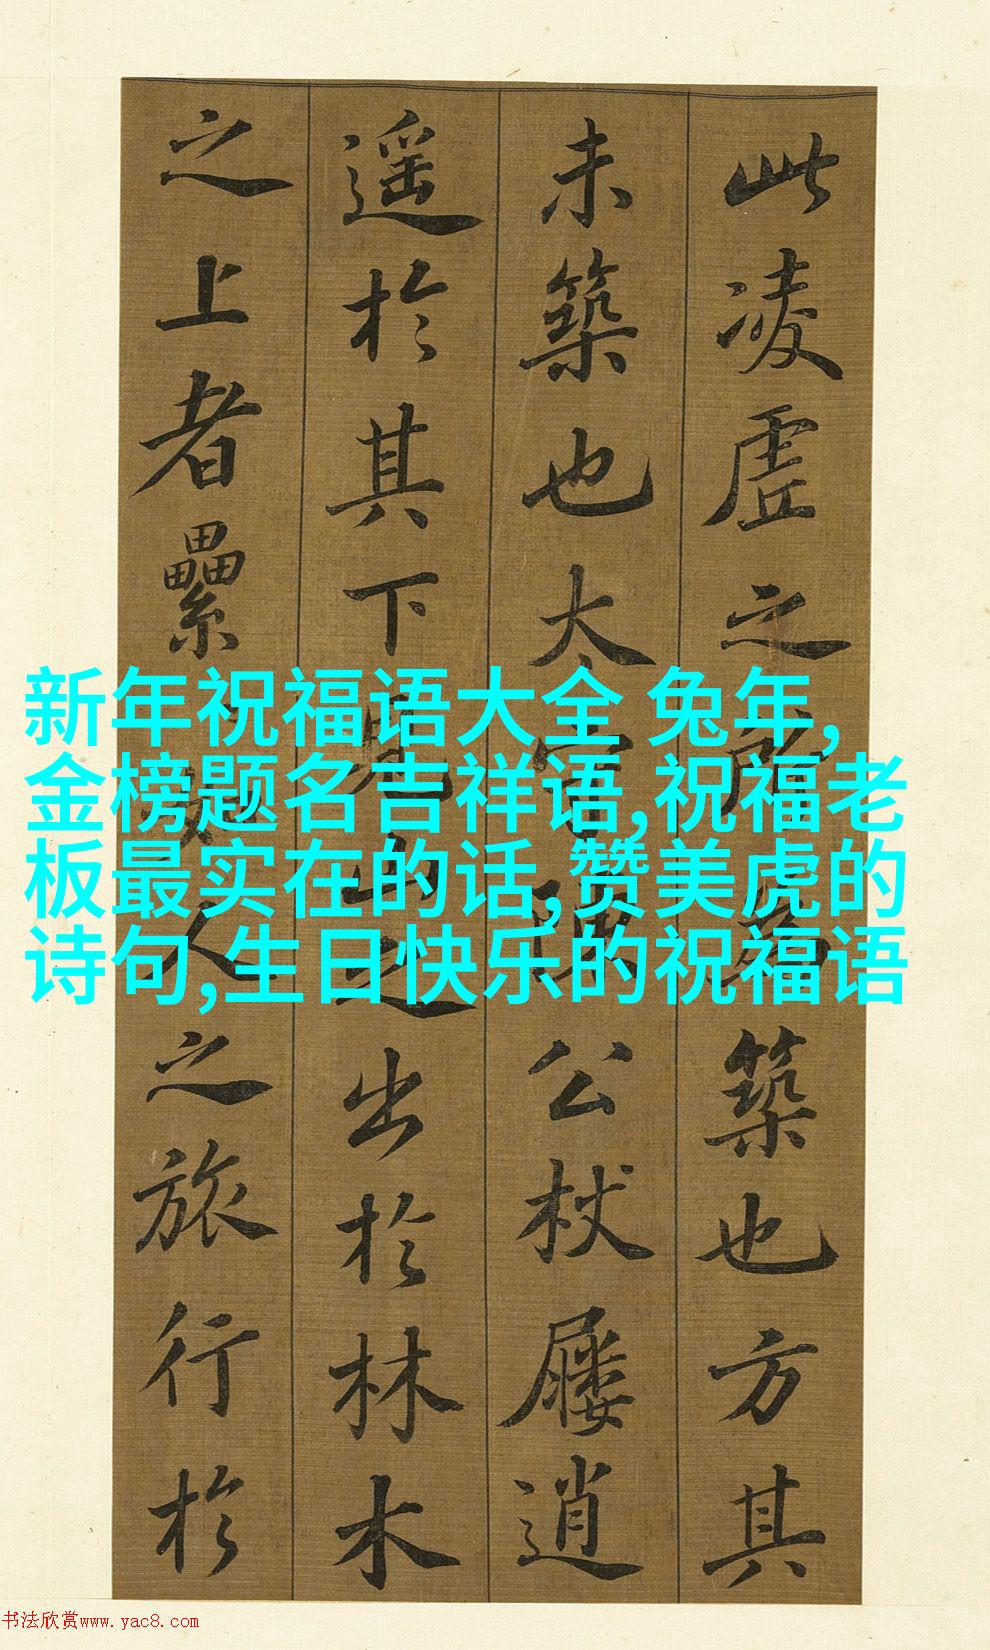 此凌虛之所為築也方其
未築也太守陳公杖屨逍
遥於其下見山之出於林木
之上者纍如人之旅行於
新年祝福语大全 兔年,
金榜题名吉祥语,祝福老
板最实在的话,赞美虎的
诗句,生日快乐的祝福语
书法欣赏www.yac8.com